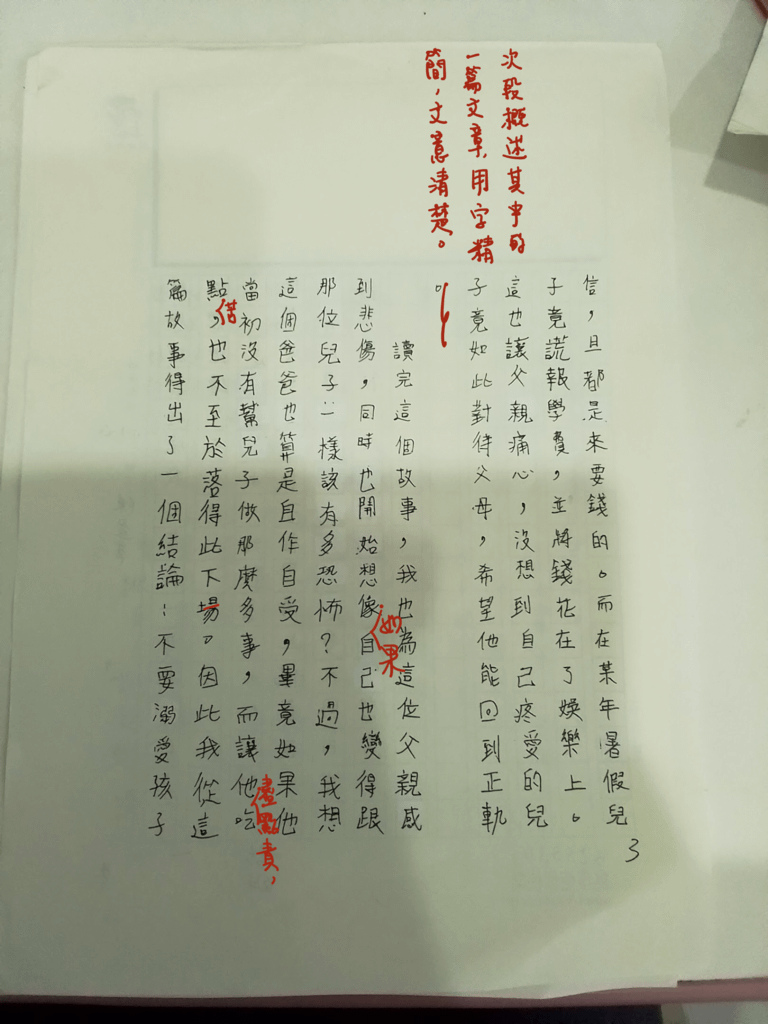 次段概述其中的
一篇文章，用字精
簡，文意清楚。
3
信，且都是來要錢的。而在某年暑假兒
子竟謊報學費，並將錢花在了娛樂上。
這也讓父親痛心，沒想到自己疼愛的兒
子竟如此對待父母，希望他能回到正軌
。
讀完這個故事，我也為這位父親感
到悲傷，同時也開始想像自己也變得跟
如果
那位兒子一樣該有多恐怖？不過，我想
這個爸爸也算是自作自受，畢竟如果他
當初沒有幫兒子做那麼多事，而讓他吃
盡點責，
點，也不至於落得此下場。因此我從這
篇故事得出了一個結論：不要溺愛孩子